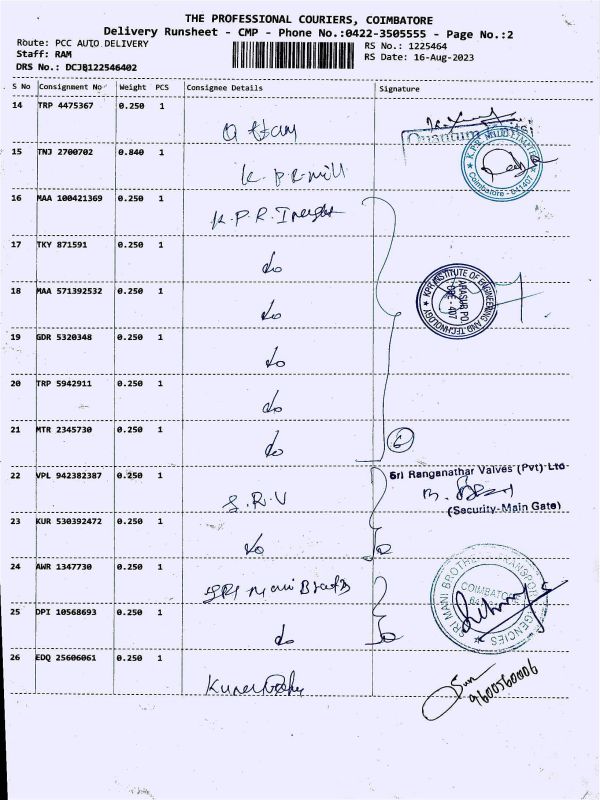 THE PROFESSIONAL COURIERS, COIMBATORE
Delivery Runsheet - CMP - Phone No.:0422-3505555 - Page No.:2
Route: PCC AUTO DELIVERY
Staff: RAM
DRS No.: DCJB122546402
RS No.: 1225464
RS Date: 16-Aug-2023
S No Consignment No Weight PCS Consignee Details Signature
14 TRP 4475367 0.250 1
15 TNJ 2700702 0.840 1 K.P.R mill
K.P.R. MILL LIMITED
Coimbatore - 641407
16 MAA 100421369 0.250 1 K.P.R.
17 TKY 871591 0.250 1 do
18 MAA 571392532 0.250 1 do
KPR INSTITUTE OF ENGINEERING AND TECHNOLOGY
ARASUR PO
CBE - 407
19 GDR 5320348 0.250 1 do
20 TRP 5942911 0.250 1 do
21 MTR 2345730 0.250 1 do
6
22 VPL 942382387 0.250 1 S.R.V
Sri Ranganathar Valves (Pvt) Ltd
(Security-Main Gate)
23 KUR 530392472 0.250 1 do
24 AWR 1347730 0.250 1 SRI Mani
SRI MANI BROTHERS TRANSPORT AGENCIES
COIMBATORE
25 DPI 10568693 0.250 1 do
26 EDQ 25606061 0.250 1
9600560006